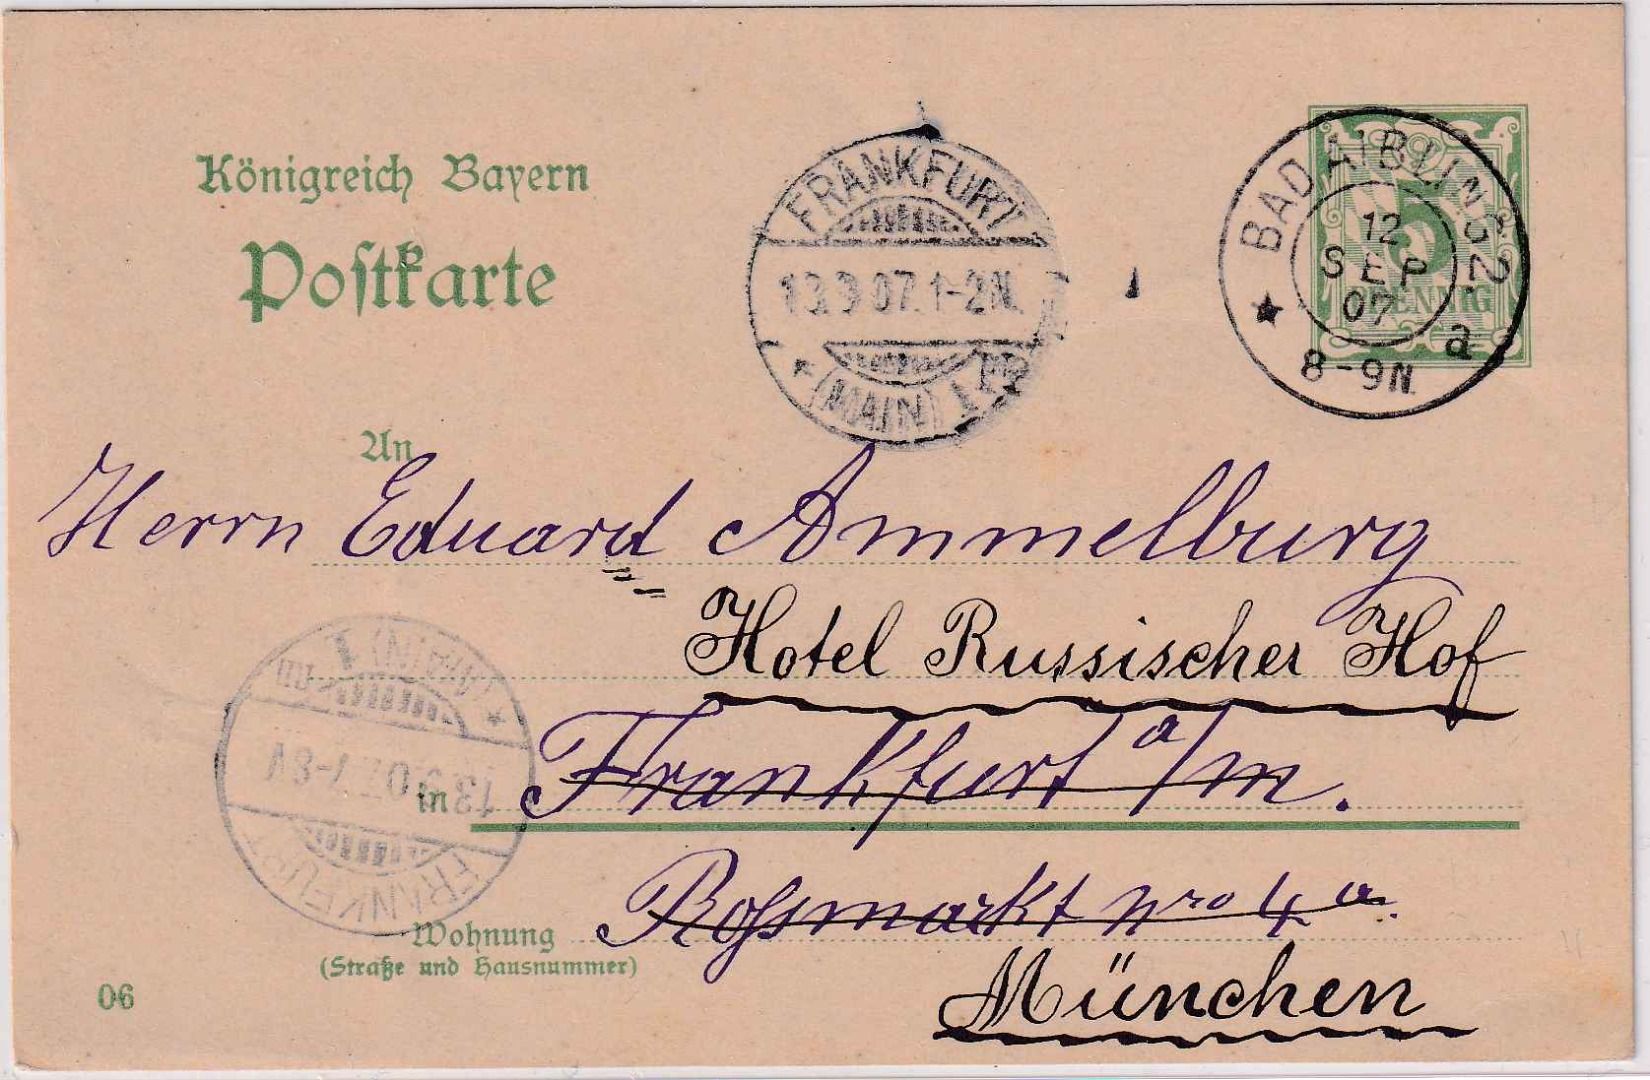 Königreich Bayern
Postkarte
FRANKFURT
13.9 07. 1-2N.
* (MAIN) 1
BAD AIBLING 2.
12
SEP
07
a
8-9N.
★
5
PFENNIG
An
Herrn Eduard Ammelburg
Hotel Russischer Hof
in Frankfurt a/m.
Wohnung Roßmarkt Nro 4 a.
(Straße und Hausnummer)
München
06
FRANKFURT
13.9.07. 7-8V
* (MAIN) 1